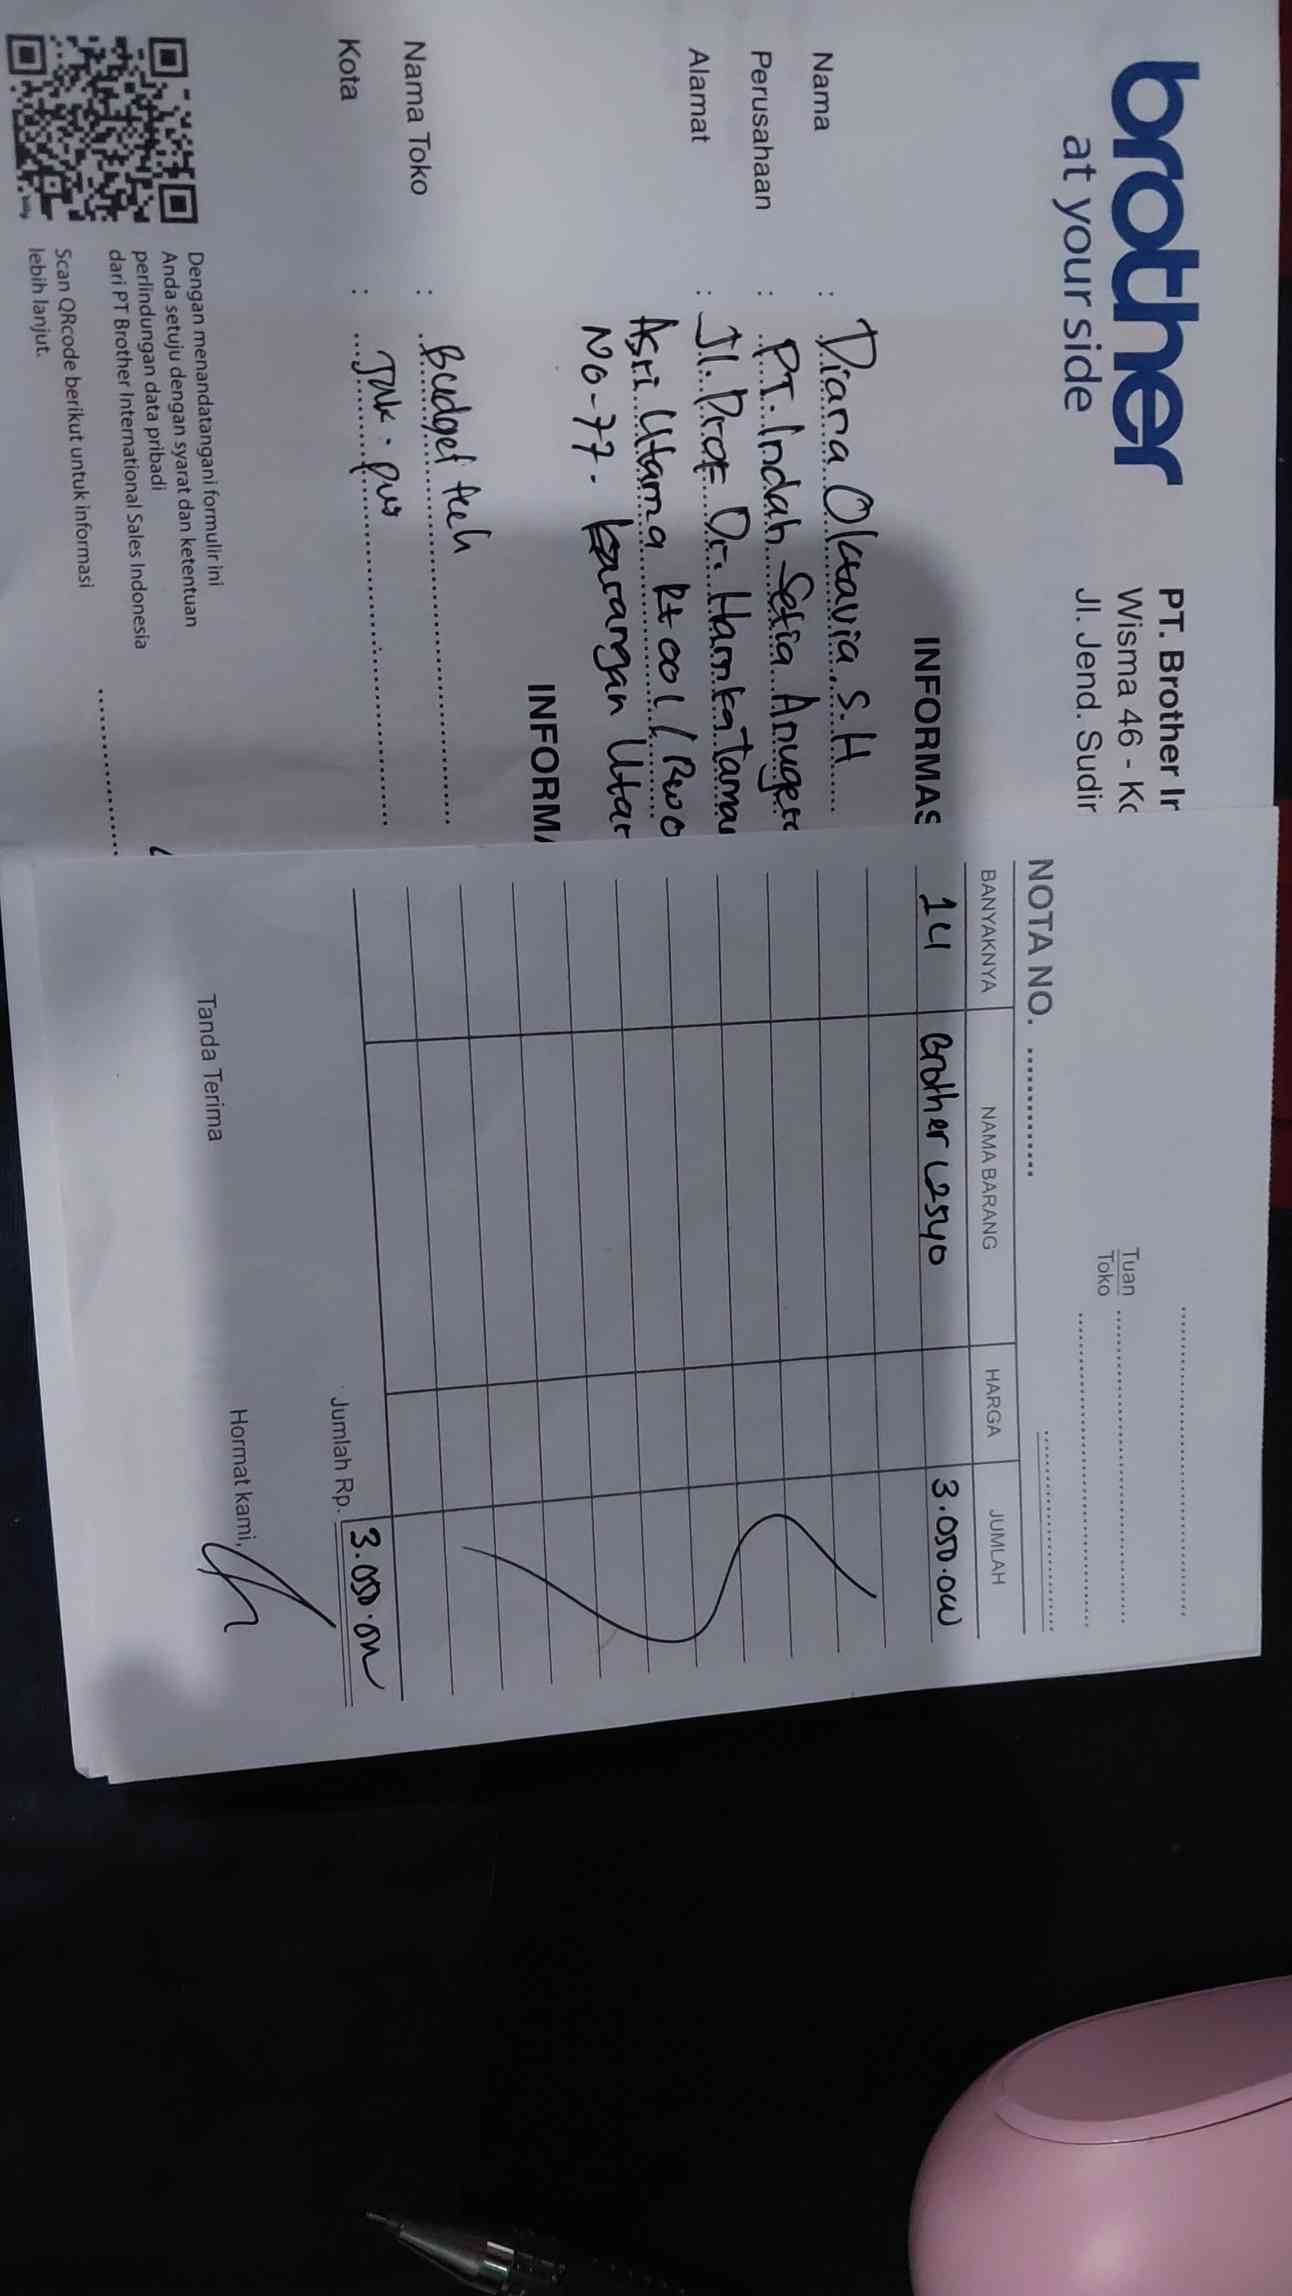 brother
at your side
PT. Brother Ir
Wisma 46 - Ko
Jl. Jend. Sudir
INFORMAS
Nama : Diana Oktavia, S.H
Perusahaan : PT. Indah Setia Anuger
Alamat : Jl. Prof. Dr. Hamka Taman
Asri Utama Rt 001 / Rw 0
No-77.
INFORMA
Nama Toko : Budget tech
Kota : Jak. pus
Dengan menandatangani formulir ini
Anda setuju dengan syarat dan ketentuan
perlindungan data pribadi
dari PT Brother International Sales Indonesia
Scan QRcode berikut untuk informasi
lebih lanjut.
Tuan
Toko
NOTA NO.
BANYAKNYA NAMA BARANG HARGA JUMLAH
14 Brother L2540 3.050.000
Jumlah Rp. 3.050.000
Tanda Terima Hormat kami,